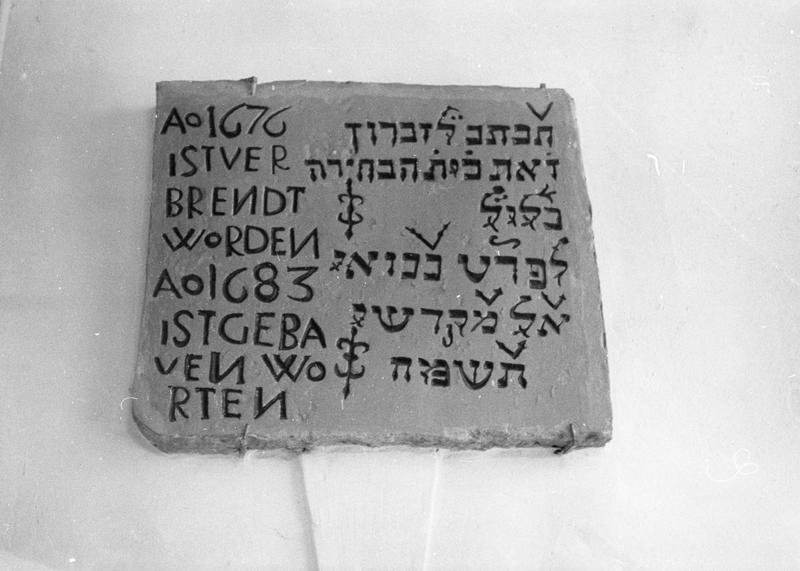 AO 1676
ISTVER
BRENDT
WORDEN
AO 1683
ISTGEBA
VEN WO
RTEN
תכתב לזכרון
זאת בית הבחירה
כלול
לפרט בבואי
אל מקדשי
תשמח